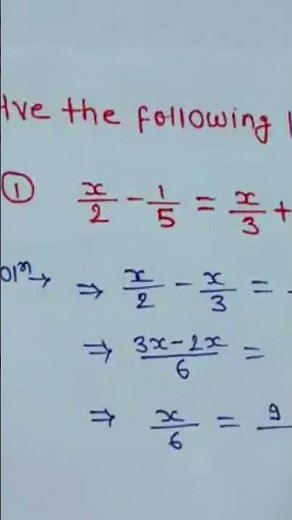 lve the following
① x/2 - 1/5 = x/3 +
olⁿ→ ⇒ x/2 - x/3 =
⇒ 3x-2x/6 =
⇒ x/6 = 9